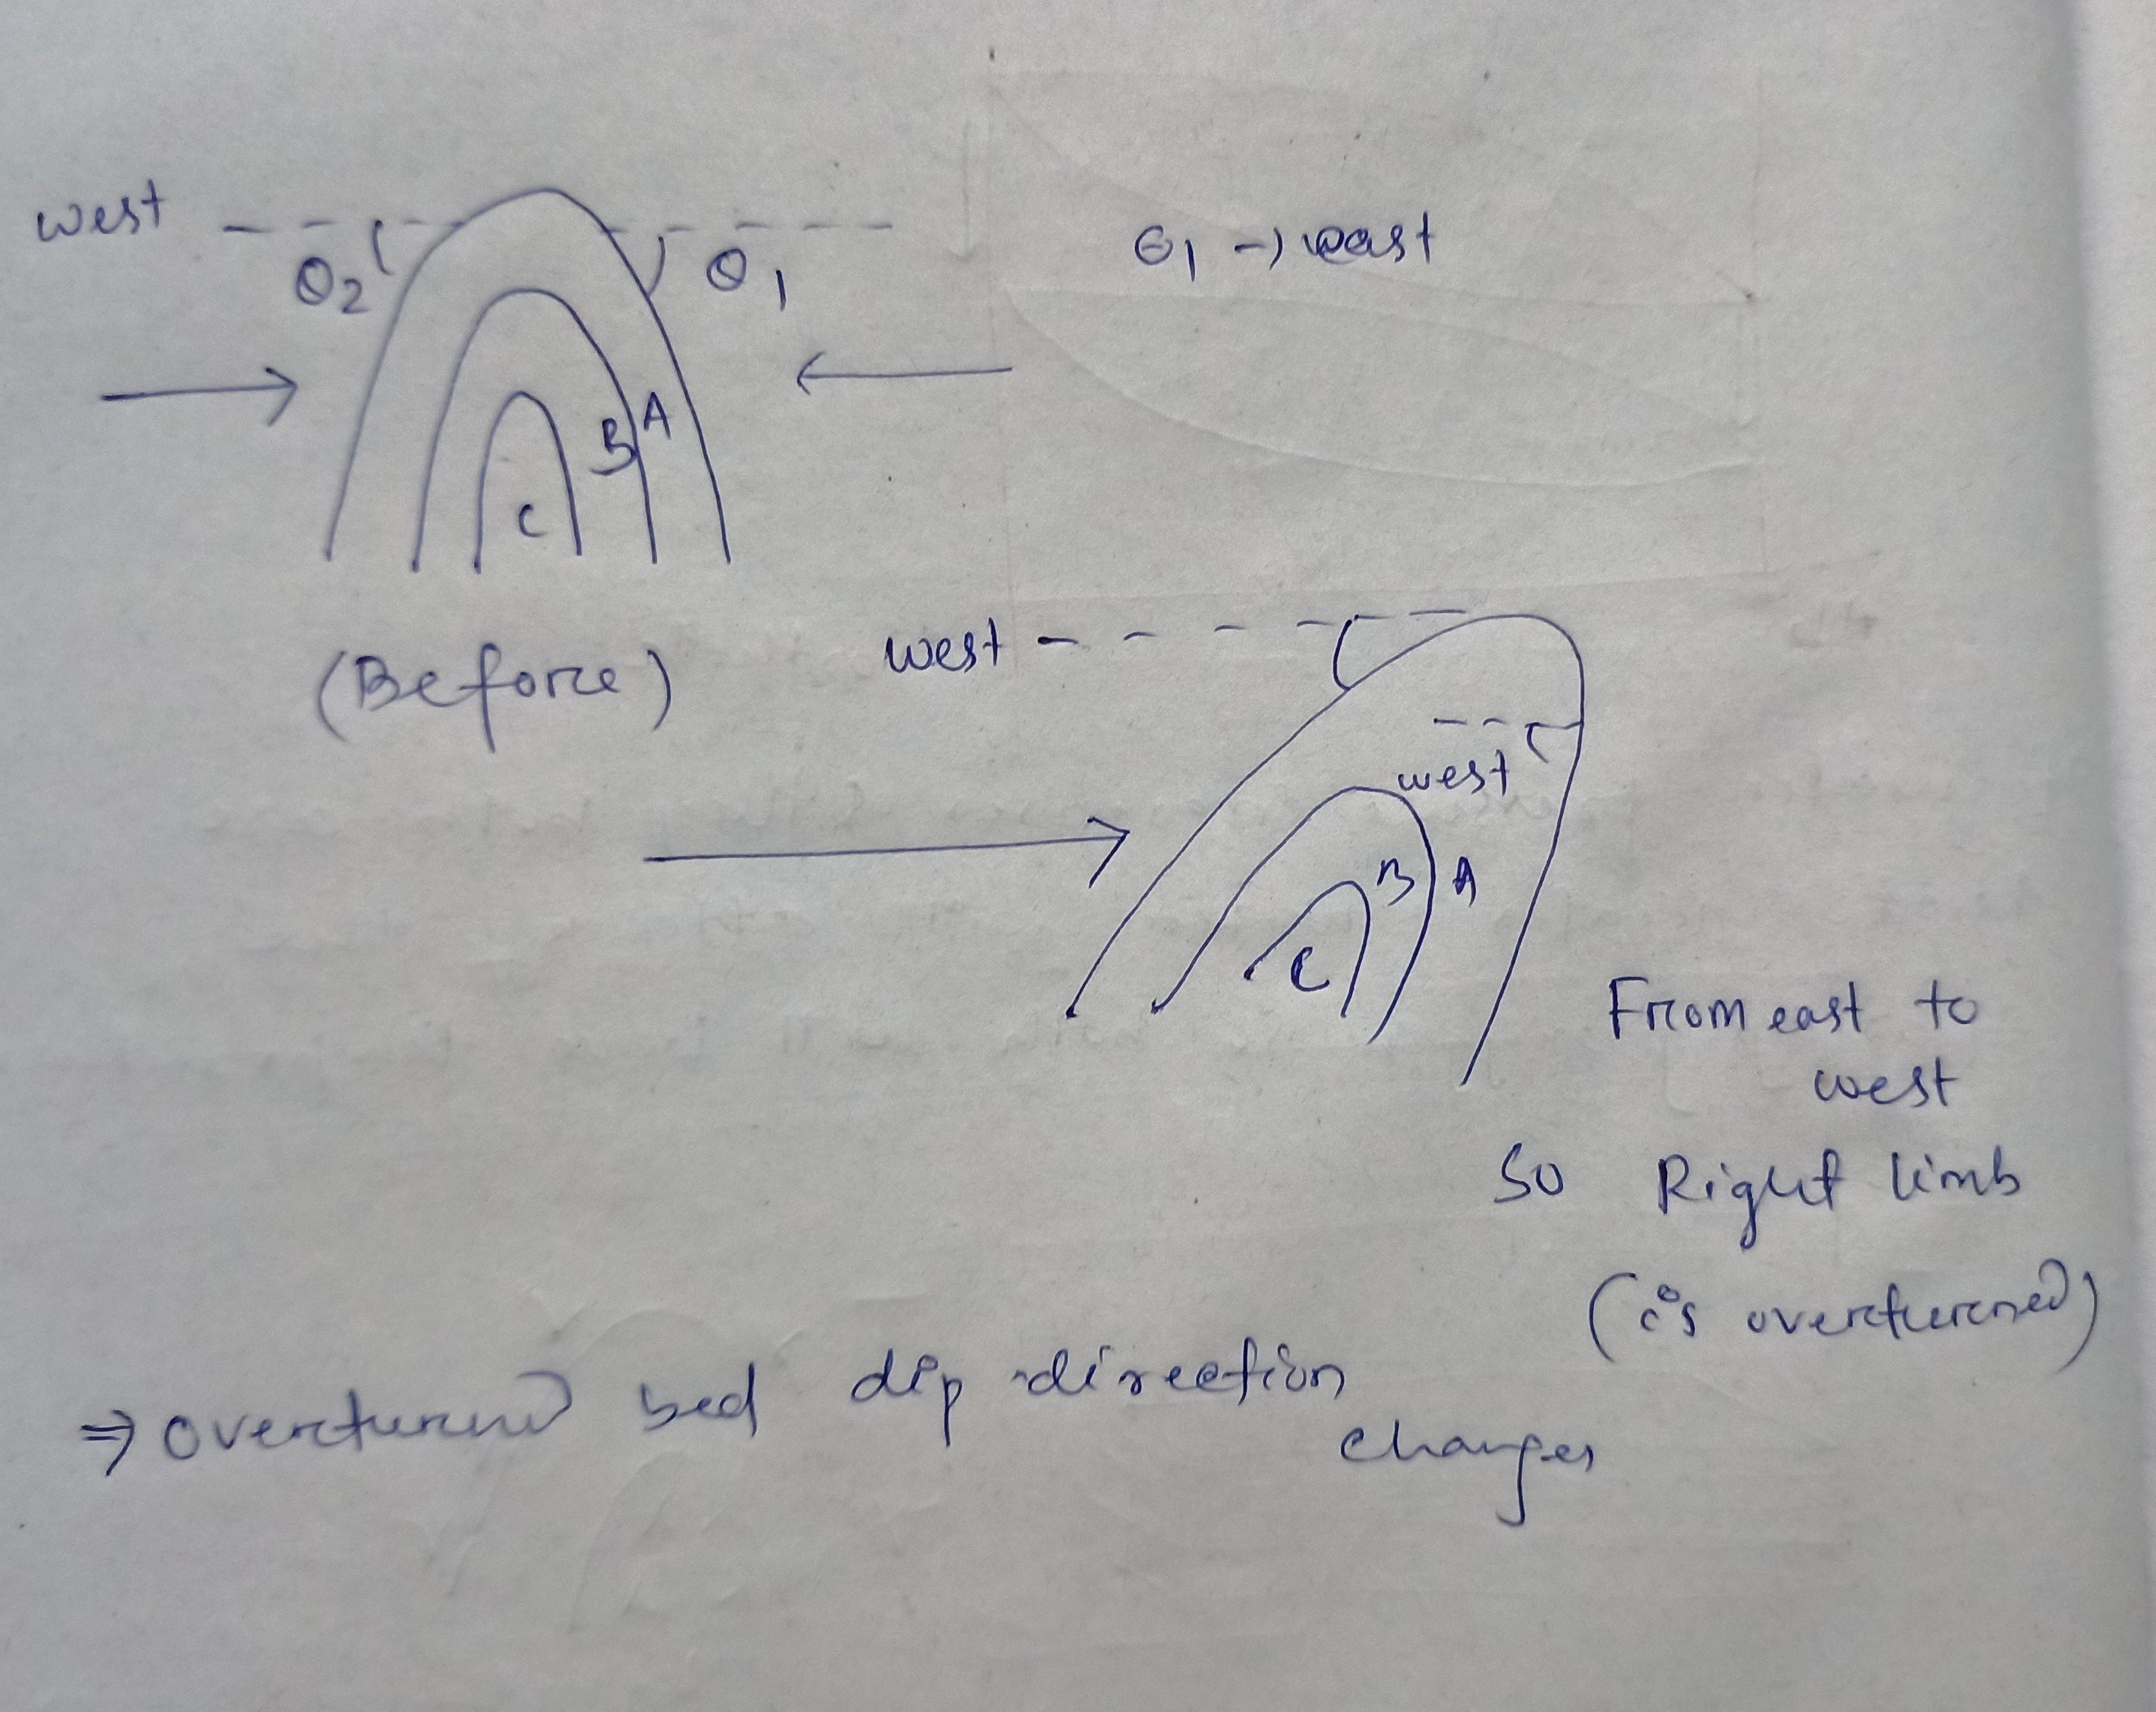 west
θ2
θ1
θ1 → east
B A
C
(Before)
west
west
B A
C
From east to
west
So Right limb
(is overturned)
⇒ overturned bed dip direction
changes